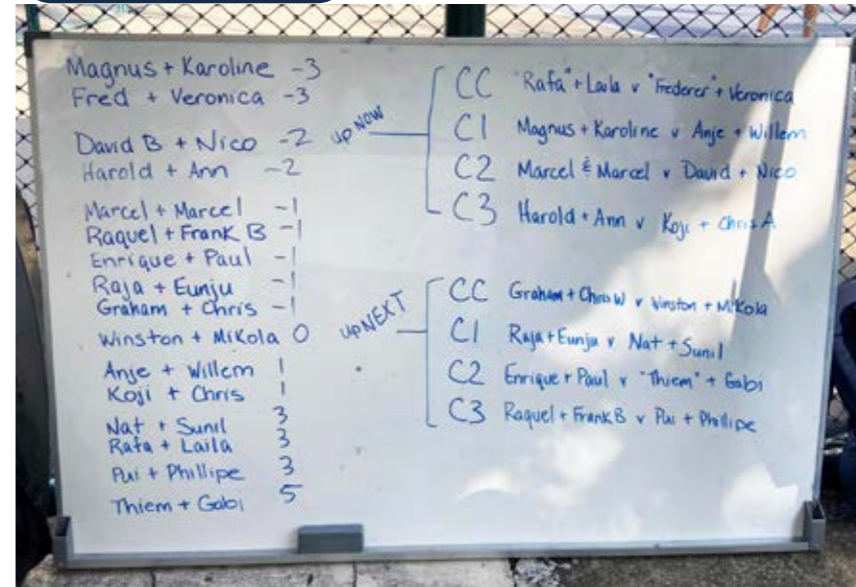 Magnus + Karoline -3
Fred + Veronica -3
David B + Nico -2
Harold + Ann -2
Marcel + Marcel -1
Raquel + Frank B -1
Enrique + Paul -1
Raja + Eunju -1
Graham + Chris -1
Winston + Mikola 0
Anje + Willem 1
Koji + Chris 1
Nat + Sunil 3
Rafa + Laila 3
Pui + Phillipe 3
Thiem + Gabi 5
up NOW
CC "Rafa" + Laila v "Federer" + Veronica
C1 Magnus + Karoline v Anje + Willem
C2 Marcel & Marcel v David + Nico
C3 Harold + Ann v Koji + Chris A
up NEXT
CC Graham + Chris W v Winston + Mikola
C1 Raja + Eunju v Nat + Sunil
C2 Enrique + Paul v "Thiem" + Gabi
C3 Raquel + Frank B v Pui + Phillipe